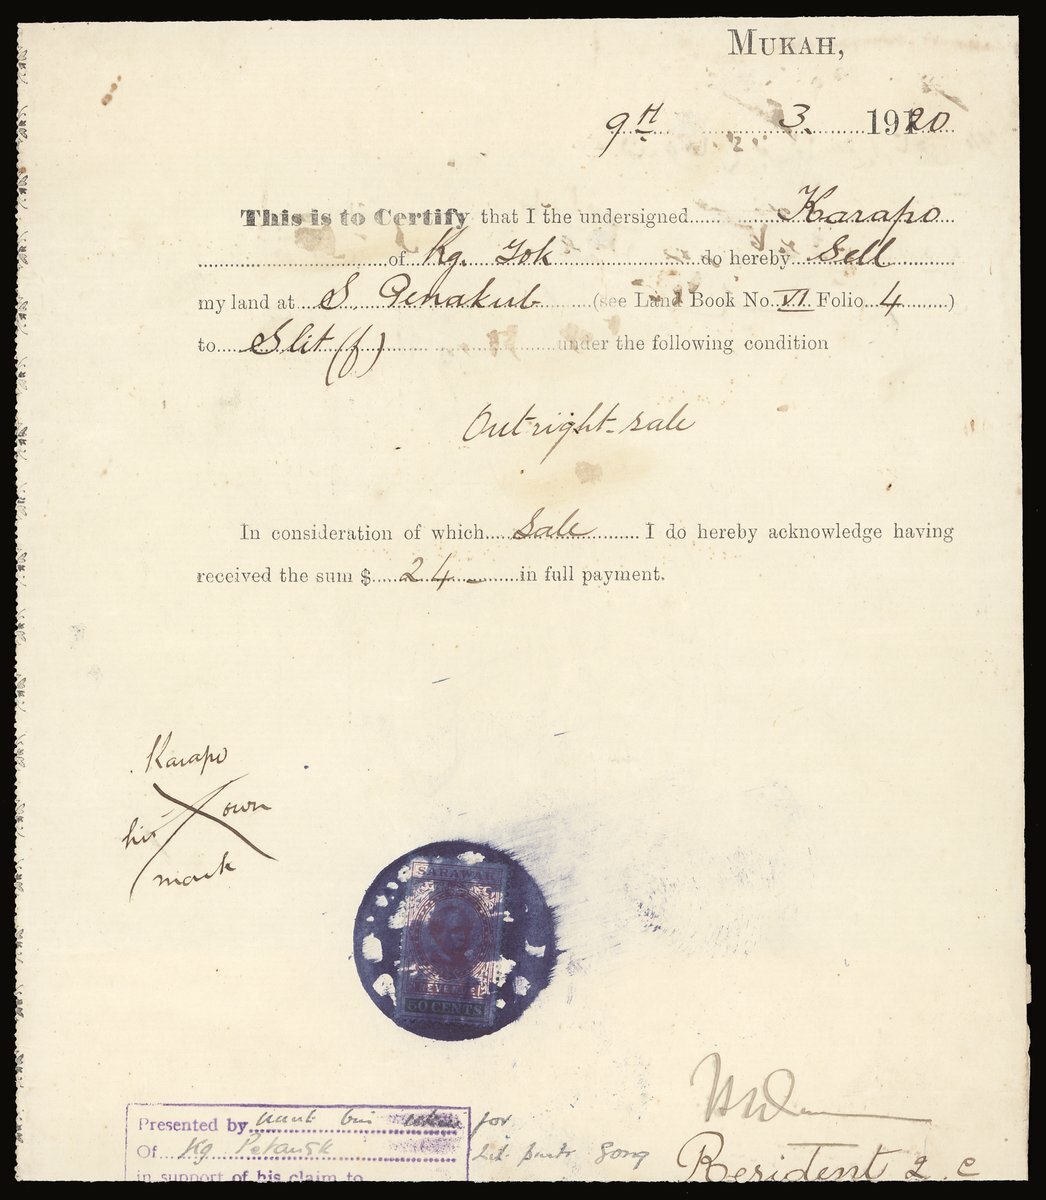 MUKAH,
9th 3. 1920
This is to Certify that I the undersigned Karapo
of Kg. Tok do hereby Sell
my land at S. Penakub (see Land Book No. VI Folio 4 )
to Slit (f) under the following condition
Outright-sale
In consideration of which Sale I do hereby acknowledge having
received the sum $ 24 - in full payment.
Karapo
his own
mark
SARAWAK
REVENUE
50 CENTS
Presented by bin for
Of Kg
in support of his claim to
Resident 2. C